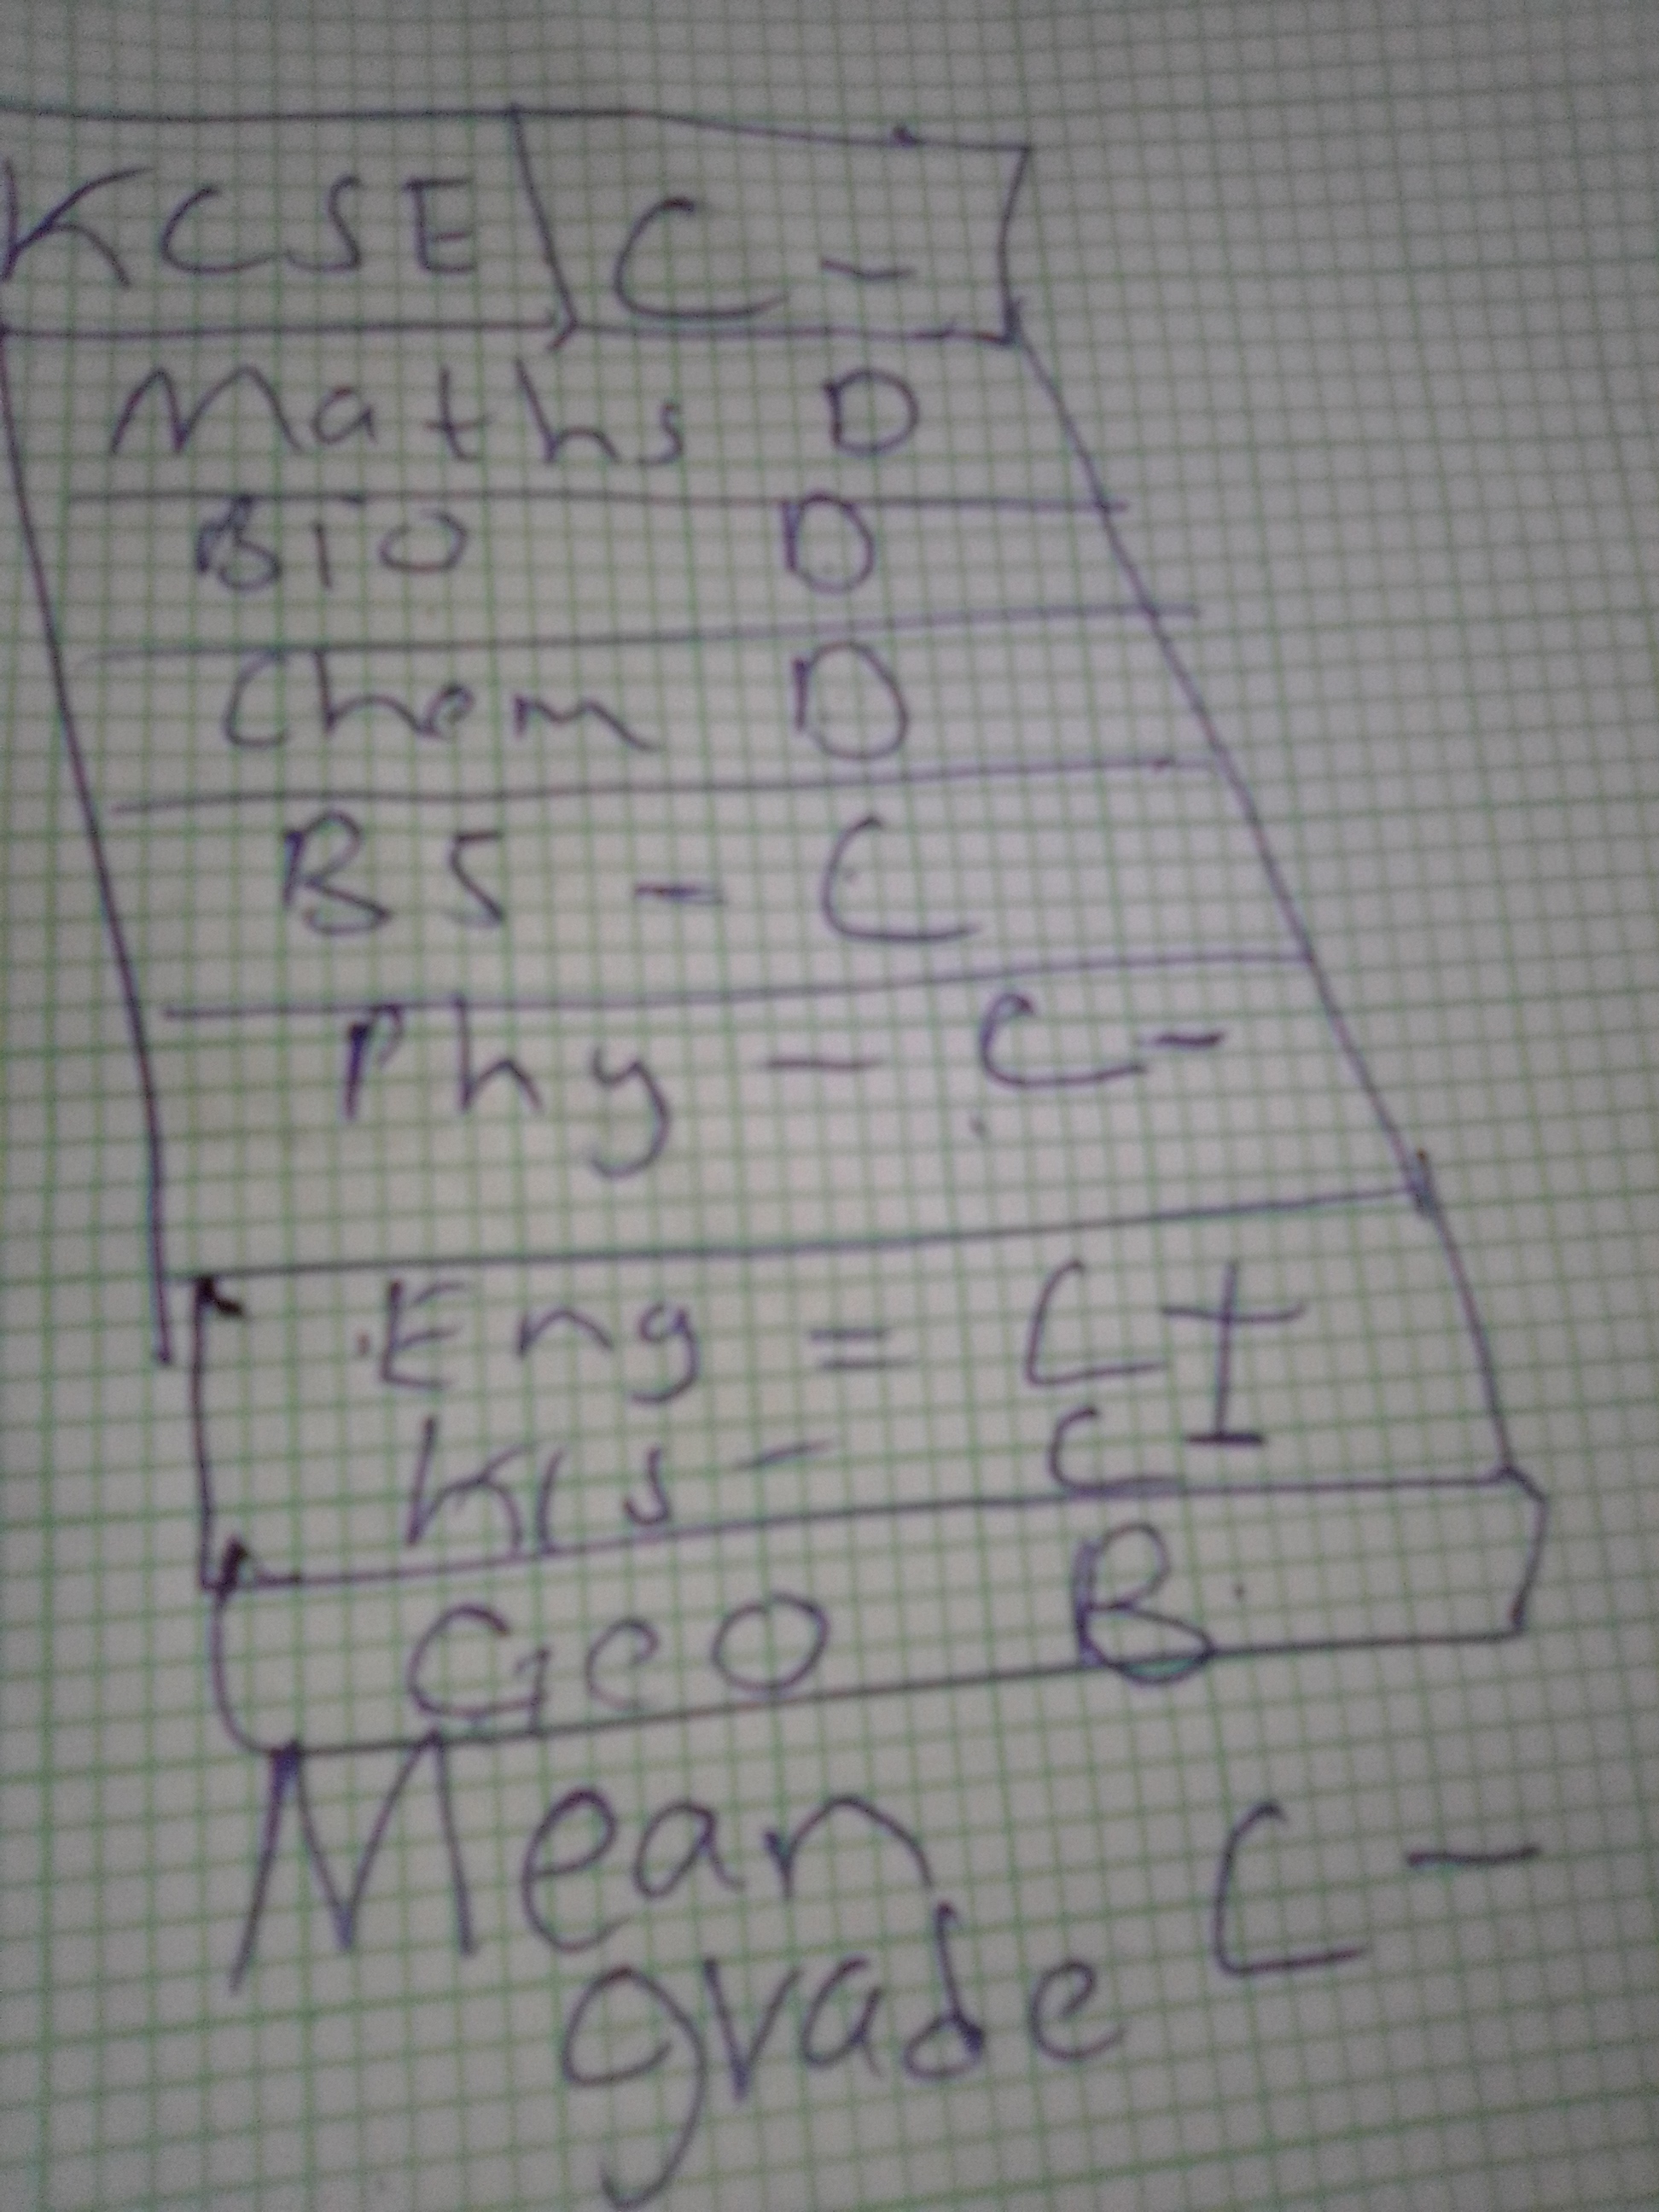 KCSE C -
Maths D
BIO D
Chem D
BS - C
Phy - C -
Eng = C +
Kis - C -
GeO B
Mean C -
grade